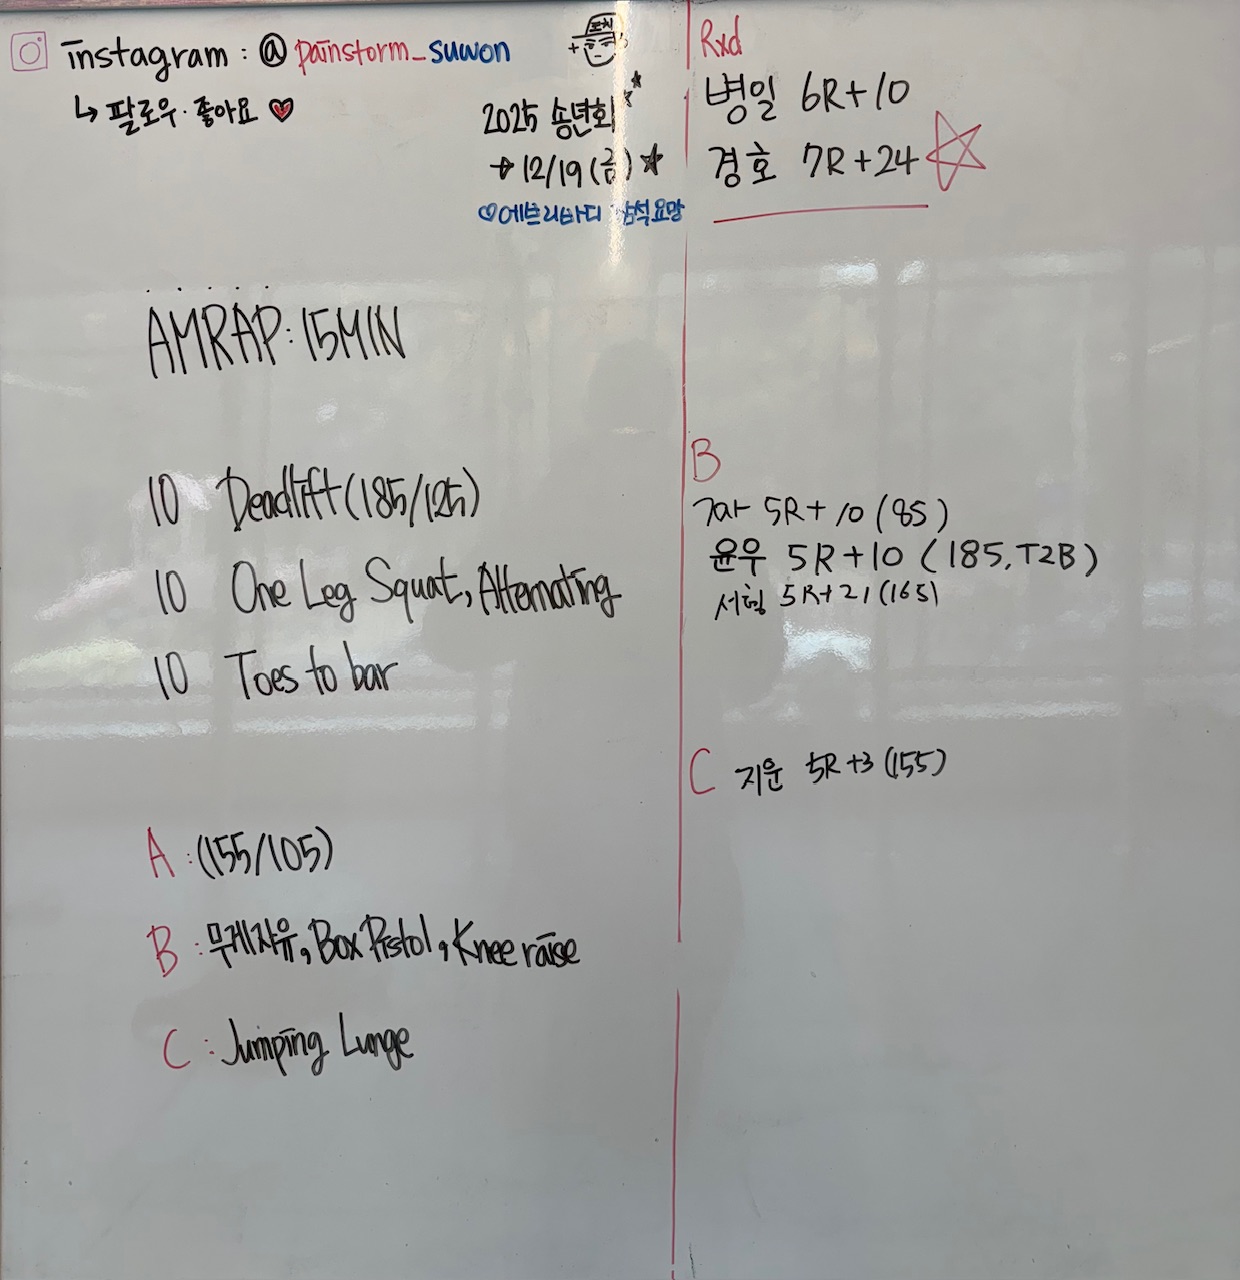 instagram : @ painstorm_suwon
↳ 팔로우·좋아요 ♥
코치
2025 송년회
→ 12/19 (금) ★
♡에브리바디 참석요망
AMRAP : 15MIN
10 Deadlift (185/125)
10 One Leg Squat, Alternating
10 Toes to bar
A : (155/105)
B : 무게자유, Box Pistol, Knee raise
C : Jumping Lunge
Rxd
병일 6R+10
경호 7R+24
B
5R+10 (85)
윤우 5R+10 (185, T2B)
5R+21 (165)
C 지운 5R+3 (155)